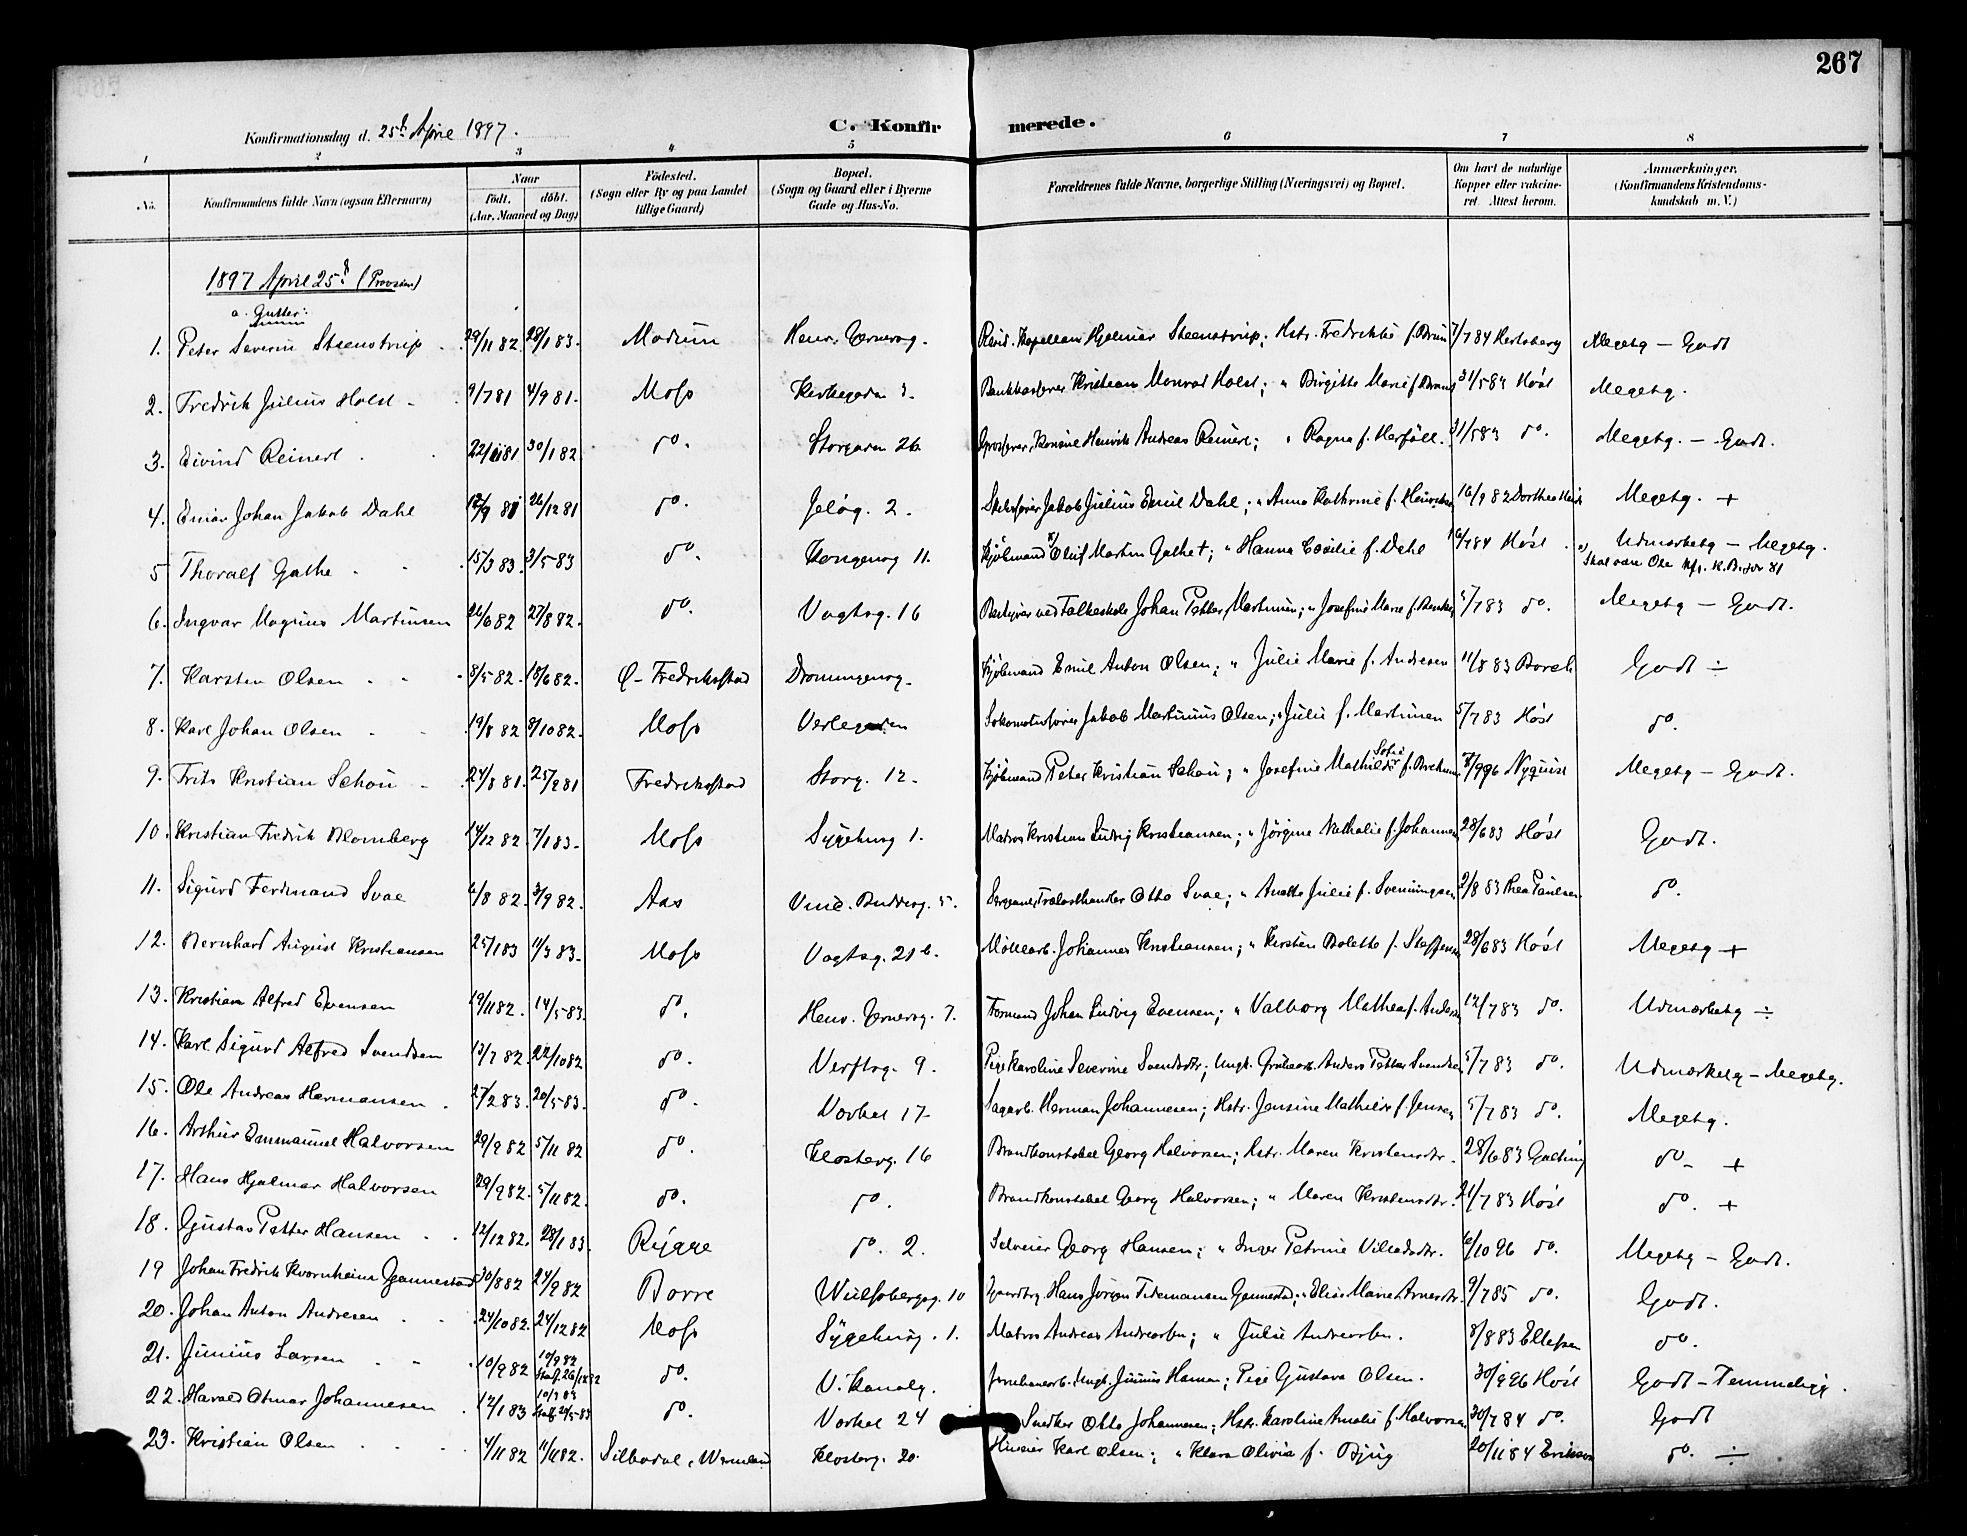 267
Konfirmationsdag d. 25de April 1897.
C. Konfirmerede.
1 2 3 4 5 6 7 8
No. Konfirmandens fulde Navn (ogsaa Efternavn) Naar født. døbt. (Aar, Maaned og Dag) Fødested. (Sogn eller By og paa Landet tillige Gaard) Bopæl. (Sogn og Gaard eller i Byerne Gade og Hus-No. Forældrenes fulde Navne, borgerlige Stilling (Næringsvei) og Bopæl. Om havt de naturlige Kopper eller vakcineret. Attest herom. Anmærkninger. (Konfirmandens Kristendomskundskab m. V.)
1897 April 25de (Provsten)
a. Gutter:
1. Peter Severin Steenstrup 29/11 82 28/1 83. Modum Henr. Gernersg. Resid. Kapellan Hjalmar Steenstrup; Hstr. Fredrikke f. Bruun 7/7 84 Hertsberg Megetg – Godt
2. Fredrik Julius Holst 9/7 81 4/9 81. Moss Kirkegaden 3. Bankkasserer Kristian Monrad Holst; " Birgitte Marie f. 31/5 84 Høst Megetg.
3. Eivind Reinert 30/1 82 do. Storgaden 26 Grosserer, Konsul Henrik Andreas Reinert; " Ragna f. Herföll. 31/5 83 do. Megetg. – Godt.
4. Einar Johan Jakob Dahl 26/12 81 do. Jeløg. 2. Skibsfører Jakob Julius Emil Dahl; " Anna Kathrine f. 16/9 82 Dorthea Megetg. +
5 Thoralf Gathe 15/3 83. 3/5 83 do. Kongensg 11. Kjøbmand x) Oluf Martin Gathe †; " Hanna Cecilie f. Dahl 16/7 84 Høst x) Udmærketg – Megetg.
Skal være Ole kfr. K.B. for 81
6. Ingvar Magnus Martinsen 26/6 82 27/8 82. do. Vogtsg. 16 Bestyrer ved Folkeskole Johan Petter Martinsen; " Josefine Marie f. 5/7 83 do. Megetg – Godt.
7. Karsten Olsen 8/5 82. 18/6 82. Ø-Fredriksstad Dronningensg. Kjøbmand Emil Anton Olsen; " Julie Marie f. Andresen 11/8 83 Borch Godt ÷
8. Karl Johan Olsen 19/8 82 8/10 82. Moss Verlegaden Lokomotivfører Jakob Martinius Olsen; " Julie f. Martinsen 5/7 83 Høst do.
9. Frits Kristian Schou 24/8 81. 25/9 81 Fredriksstad Storg. 12. Kjøbmand Peter Kristian Schou; " Josefine Mathilde Sofie f. 8/9 96 Nyquist Megetg – Godt.
10. Kristian Fredrik Blomberg 14/12 82. 7/1 83. Moss Sygehusg 1. Matros Kristian Ludvig Kristiansen; " Jörgine Nathalie f. Johannesen 28/6 83 Høst Godt.
11. Sigurd Ferdinand Svae 6/8 82. 3/9 82. Aas Vinc. Buddesg. 5. Sergeant, Trælasthandler Otto Svae; " Anette Julie f. Svenningsen 2/8 83 Thea Paulsen do.
12. Bernhard August Kristiansen 25/1 83 11/3 83. Moss Vogtsg. 21b. Møllearb. Johannes Kristiansen; " Kirsten Bolette f. Steffensen 28/6 83 Høst Megetg +
13. Kristian Alfred Evensen 19/11 82. 14/5 83. do. Henr. Gernersg. 7. Formand Johan Ludvig Evensen; " Valborg Mathea f. Andersen 12/7 83 do. Udmærketg ÷
14. Karl Sigurd Alfred Svendsen 13/7 82. 22/10 82 do. Verftsg. 9. Pige Karoline Severine Svendsdtr; Ungk. Grubearb. Anders Petter Svendsen 5/7 83 do. Udmærketg – Megetg.
15. Ole Andreas Hermansen 27/2 83. 20/5 83. do. Vorkel 17 Sagarb. Herman Johannesen; Hstr. Jensine Mathilde f. Jensen 5/7 83 do. Megetg.
16. Arthur Emmanuel Halvorsen 29/9 82 5/11 82 do. Klosterg. 16 Brandkonstabel Georg Halvorsen; Hstr. Maren Kristensdtr. 28/6 83 Galtung do. +
17. Hans Hjalmar Halvorsen 29/9 82. 5/11 82. do. do. Brandkonstabel Georg Halvorsen; " Maren Kristensdtr. 21/7 83 Høst do. +
18. Gustav Petter Hansen 12/12 82. 28/1 83. Rygge do. 2. Selveier Georg Hansen; " Inger Petrine Villadsdtr. 6/10 96 do. Megetg – Godt.
19 Johan Fredrik Kvernheim Gannestad 30/8 82 24/9 82 Borre Wulfsbergsg. 10 Gaardbrg. Hans Jörgen Tidemansen Gannestad; " Elise Marie Arnesdtr. 9/7 85 do. Godt.
20. Johan Anton Andresen 24/10 82. 24/12 82 Moss Sygehusg. 1. Matros Andreas Andersen; " Julie Andersen. 8/8 83 Ellefsen do.
21. Junius Larsen 10/9 82 10/9 82 Stadf. 26/12 82 do. V. Kanalg. Jernbanearb. Ungk. Junius Hansen; Pige Gustava Olsen. 30/9 96 Høst Godt – Temmelig g.
22. Harald Otmar Johannesen 12/1 83 10/3 83 Stadf. 20/5 83 do. Vorkel 24 Snedker Otto Johannesen; Hstr. Karoline Amalie f. Halvorsen 30/7 84 do. Godt
23. Kristian Olsen 4/11 82 11/11 82. Silbodal, Wermland Klosterg. 20. Huseier Karl Olsen; " Klara Olivia f. Bjug 20/11 84 Erikson do. ÷